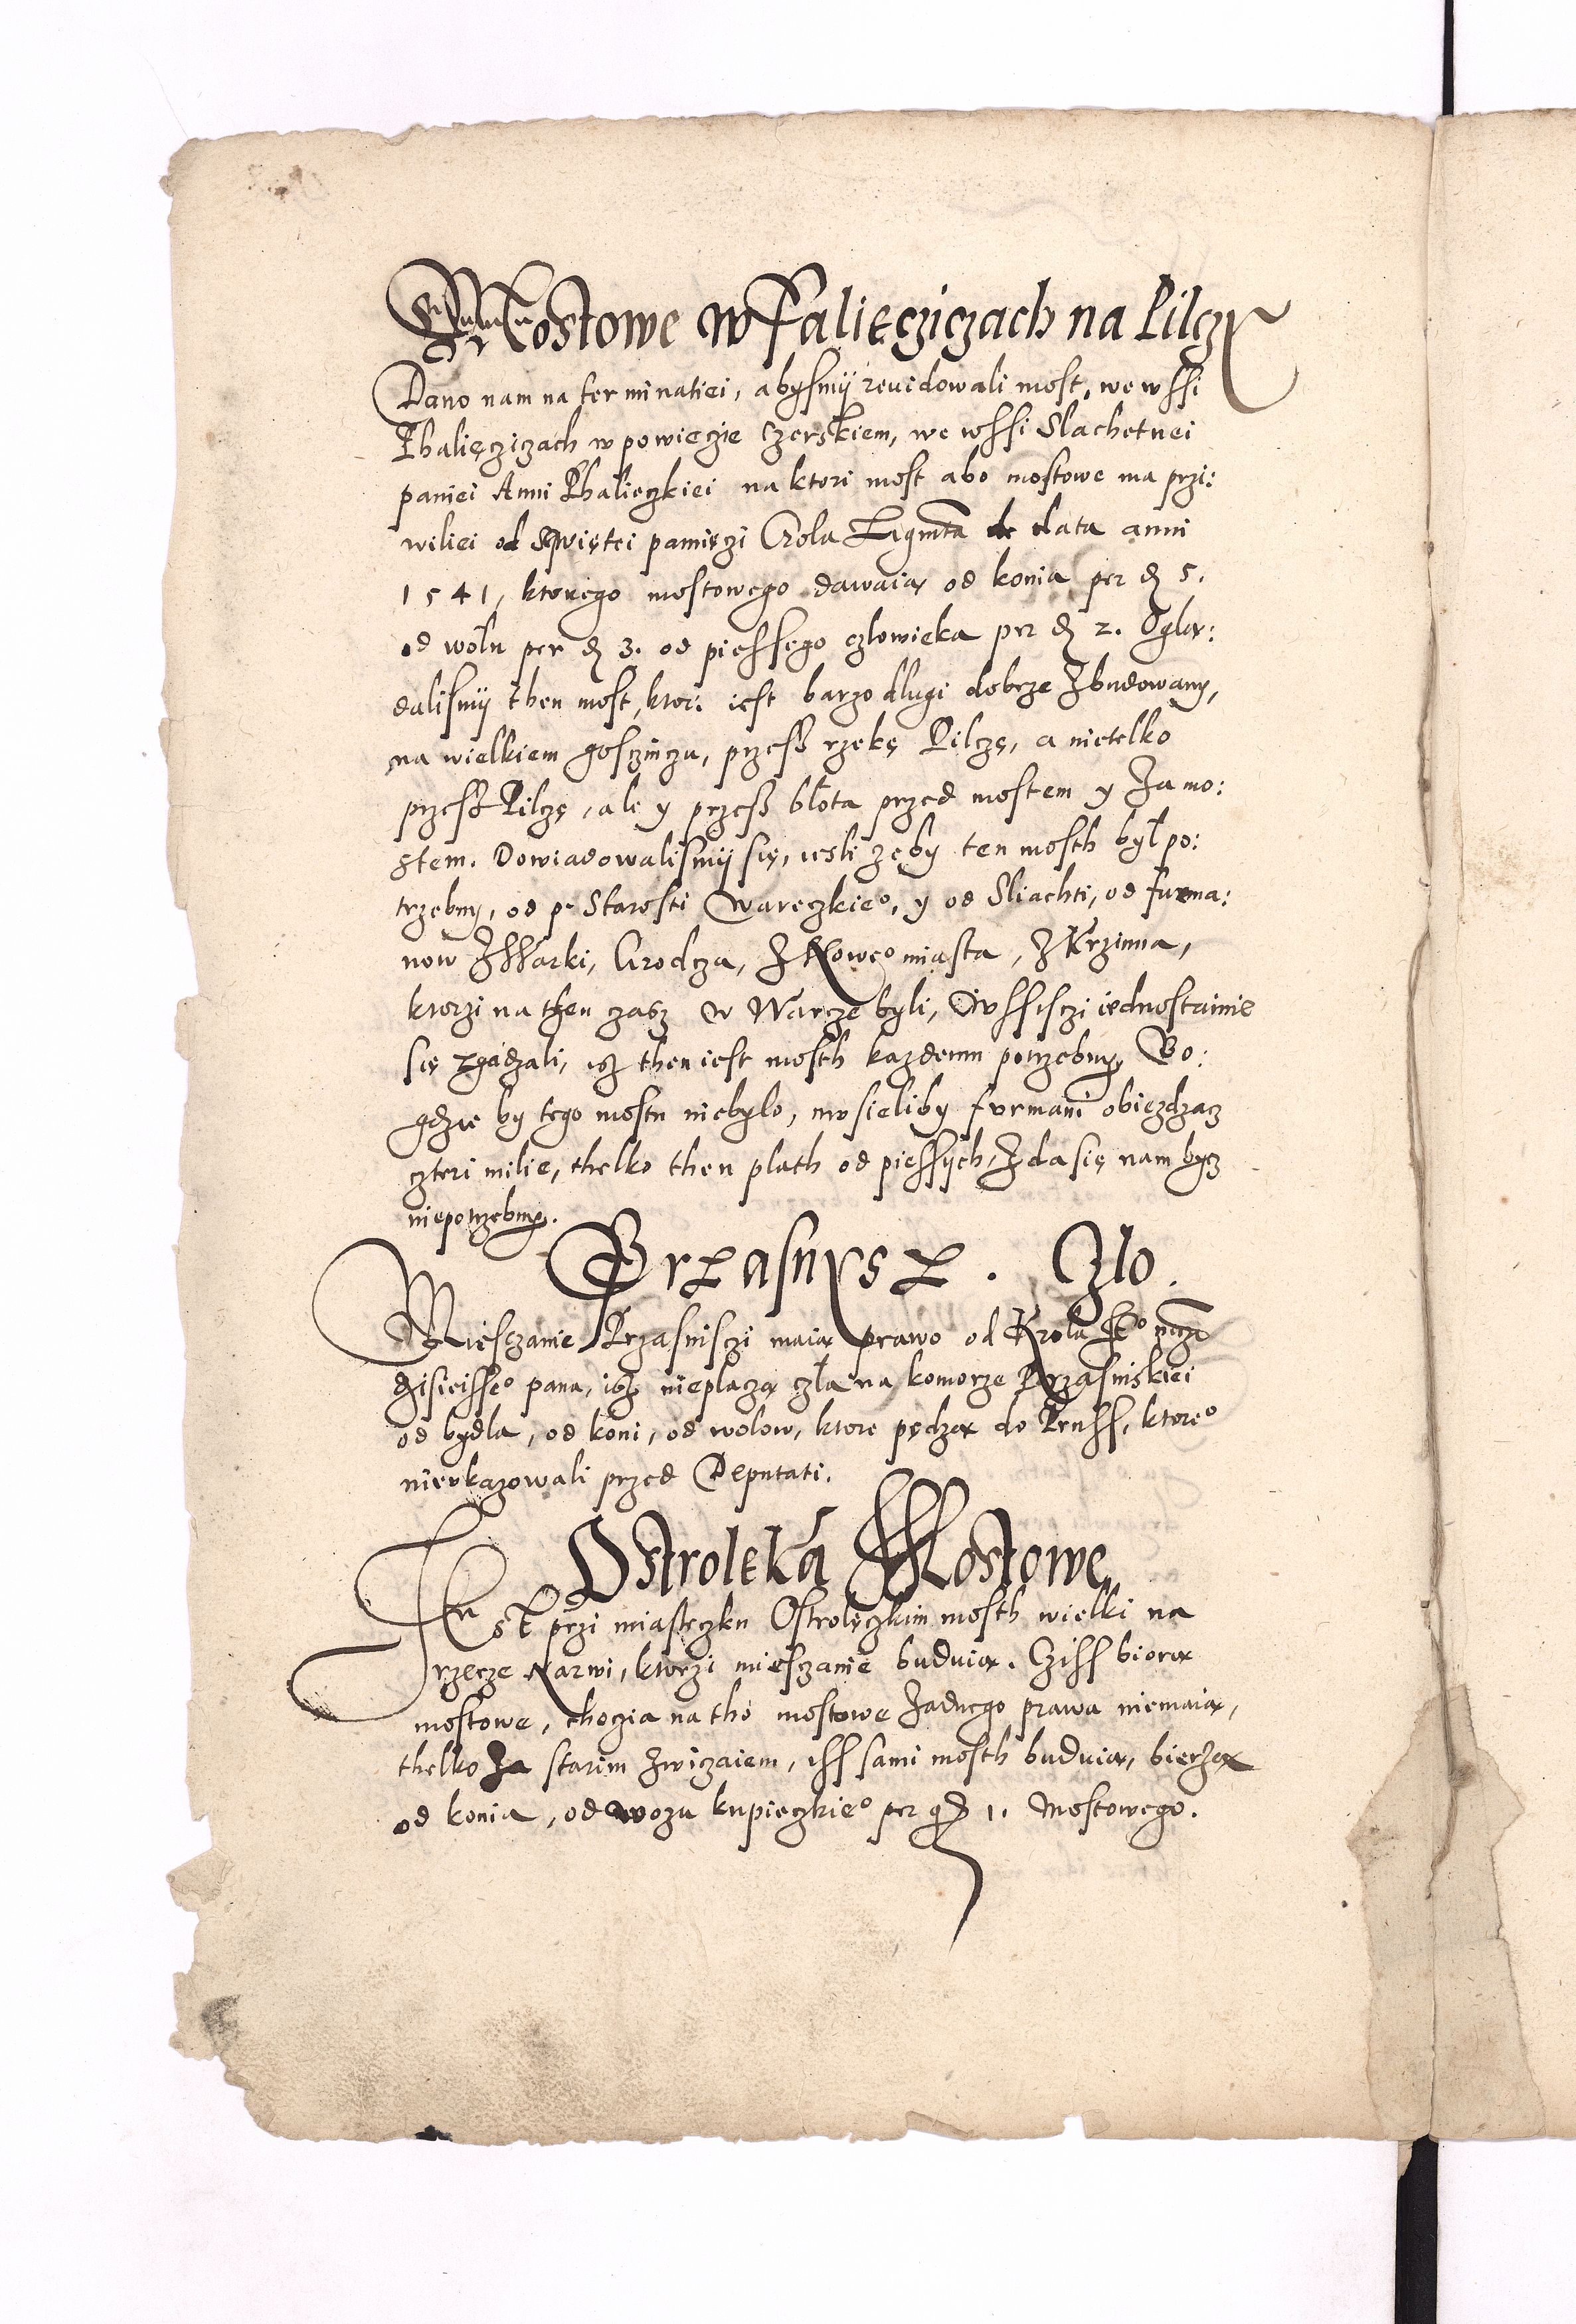 Mostowe w Falięcziczach na Pilczy
Dano nam na terminatiei, abysmÿ reuidowali most, we wssi
Phalięcziczach w powieczie Czerskiem, we wssi Slachetnei
paniei Anni Phalieczkiei na ktori most abo mostowe ma przi:
wiliei od Swiętei pamięczi Crola de data anni
1541, ktorego mostowego dawaią od konia per đ 5.
od wołu per đ 3. od piessego człowieka per đ 2. Oglą:
dalismÿ then most, ktori iest barzo dlugi dobrze zbudowany,
na wielkiem gosczinczu, przesz rzekę Pilczę, a nietelko
przesz Pilczę, ale y przesz błota przed mostem y za mo:
stem. Dowiadowalismÿ się, iesli zeby ten mosth był po:
trzebny, od p. Starosti Wareczkieº, y od Sliachti, od furma:
now z Warki, Grodcza, z Nowegº miasta, z Krzinna,
ktorzi na then czasz w Warcze byli, Wssisczi iednostainie
się zgadzali, isz then iest mosth kazdemu potrzebny, Bo:
gdzie by tego mostu niebyło, musieliby furmani obiezdzacz
czteri milie, thelko then plath od piessÿch, zda się nam bycz
niepotrzebny.
Przasnysz. Czlo.
Miesczanie Przasnisczi maią prawo od Krola
dzisieisseº pana, isz nieplaczą czła na komorze Przasniskiei
od bydła, od koni, od wolow, ktore pędzą do Pruss, ktoreº
nieukazowali przed Deputati.
Ostroleka Mostowe
Iest przi miasteczku Ostrolęczkim mosth wielki na
rzecze Narwi, ktorzi miesczanie buduią. Cziss biorą
mostowe, choczia na tho mostowe zadnego prawa niemaią,
thelko za starim zwiczaiem, iss sami mosth buduią, bierzą
od konia, od wozu kupieczkieº per gđ 1. Mostowego.